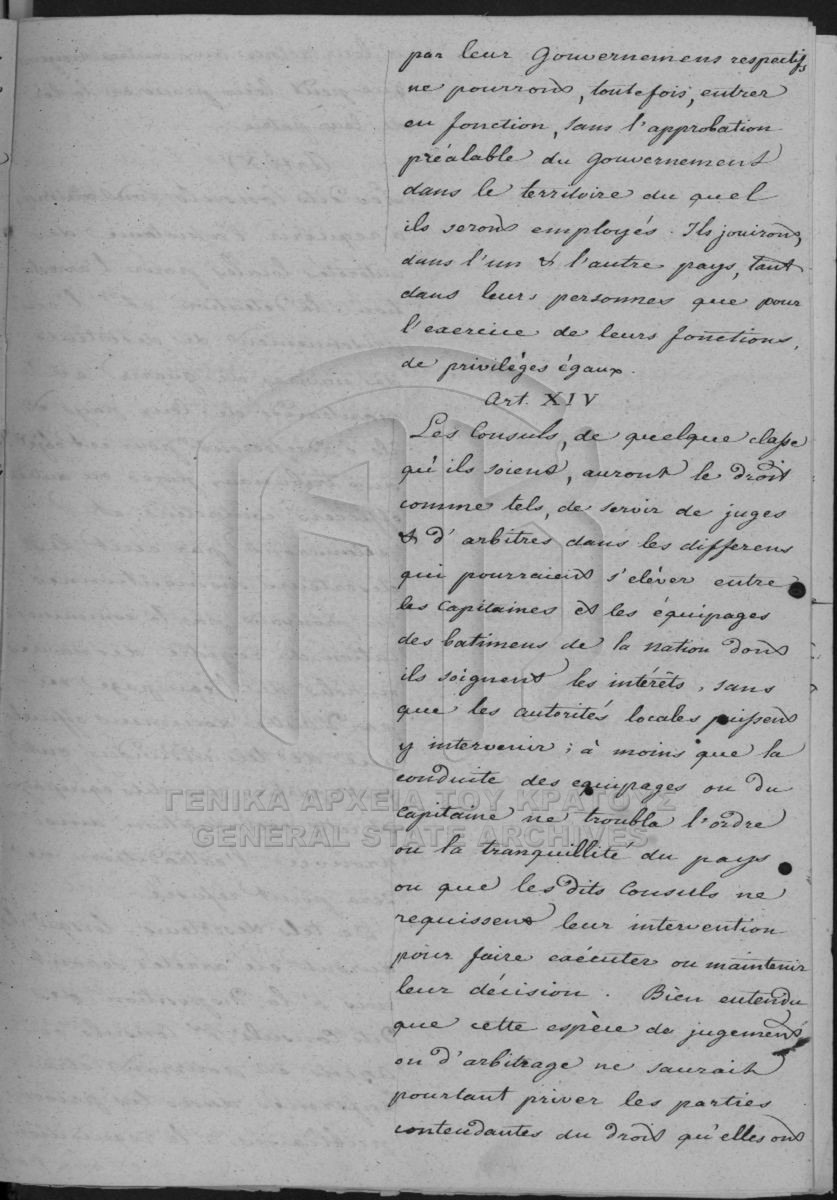 par leur Gouvernemens respectifs
ne pourront, toutefois, entrer
en fonction, sans l'approbation
préalable du Gouvernement
dans le territoire du quel
ils seront employés. Ils jouiront,
dans l'un & l'autre pays, tant
dans leurs personnes que pour
l'exercice de leurs fonctions,
de privilèges égaux.
Art. XIV
Les Consuls, de quelque classe
qu'ils soient, auront le droit
comme tels, de servir de juges
& d'arbitres dans les differens
qui pourraient s'eléver entre
les Capitaines et les équipages
des batimens de la nation dont
ils soignent les intérêts, sans
que les autorités locales puissent
y intervenir; à moins que la
conduite des equipages ou du
Capitaine ne troubla l'ordre
ou la tranquillité du pays
ou que les dits Consuls ne
requissent leur intervention
pour faire exécuter ou maintenir
leur décision. Bien entendu
que cette espèce de jugement
ou d'arbitrage ne saurait
pourtant priver les parties
contendantes du droit qu'elles ont
ΓΕΝΙΚΑ ΑΡΧΕΙΑ ΤΟΥ ΚΡΑΤΟΥΣ
GENERAL STATE ARCHIVES